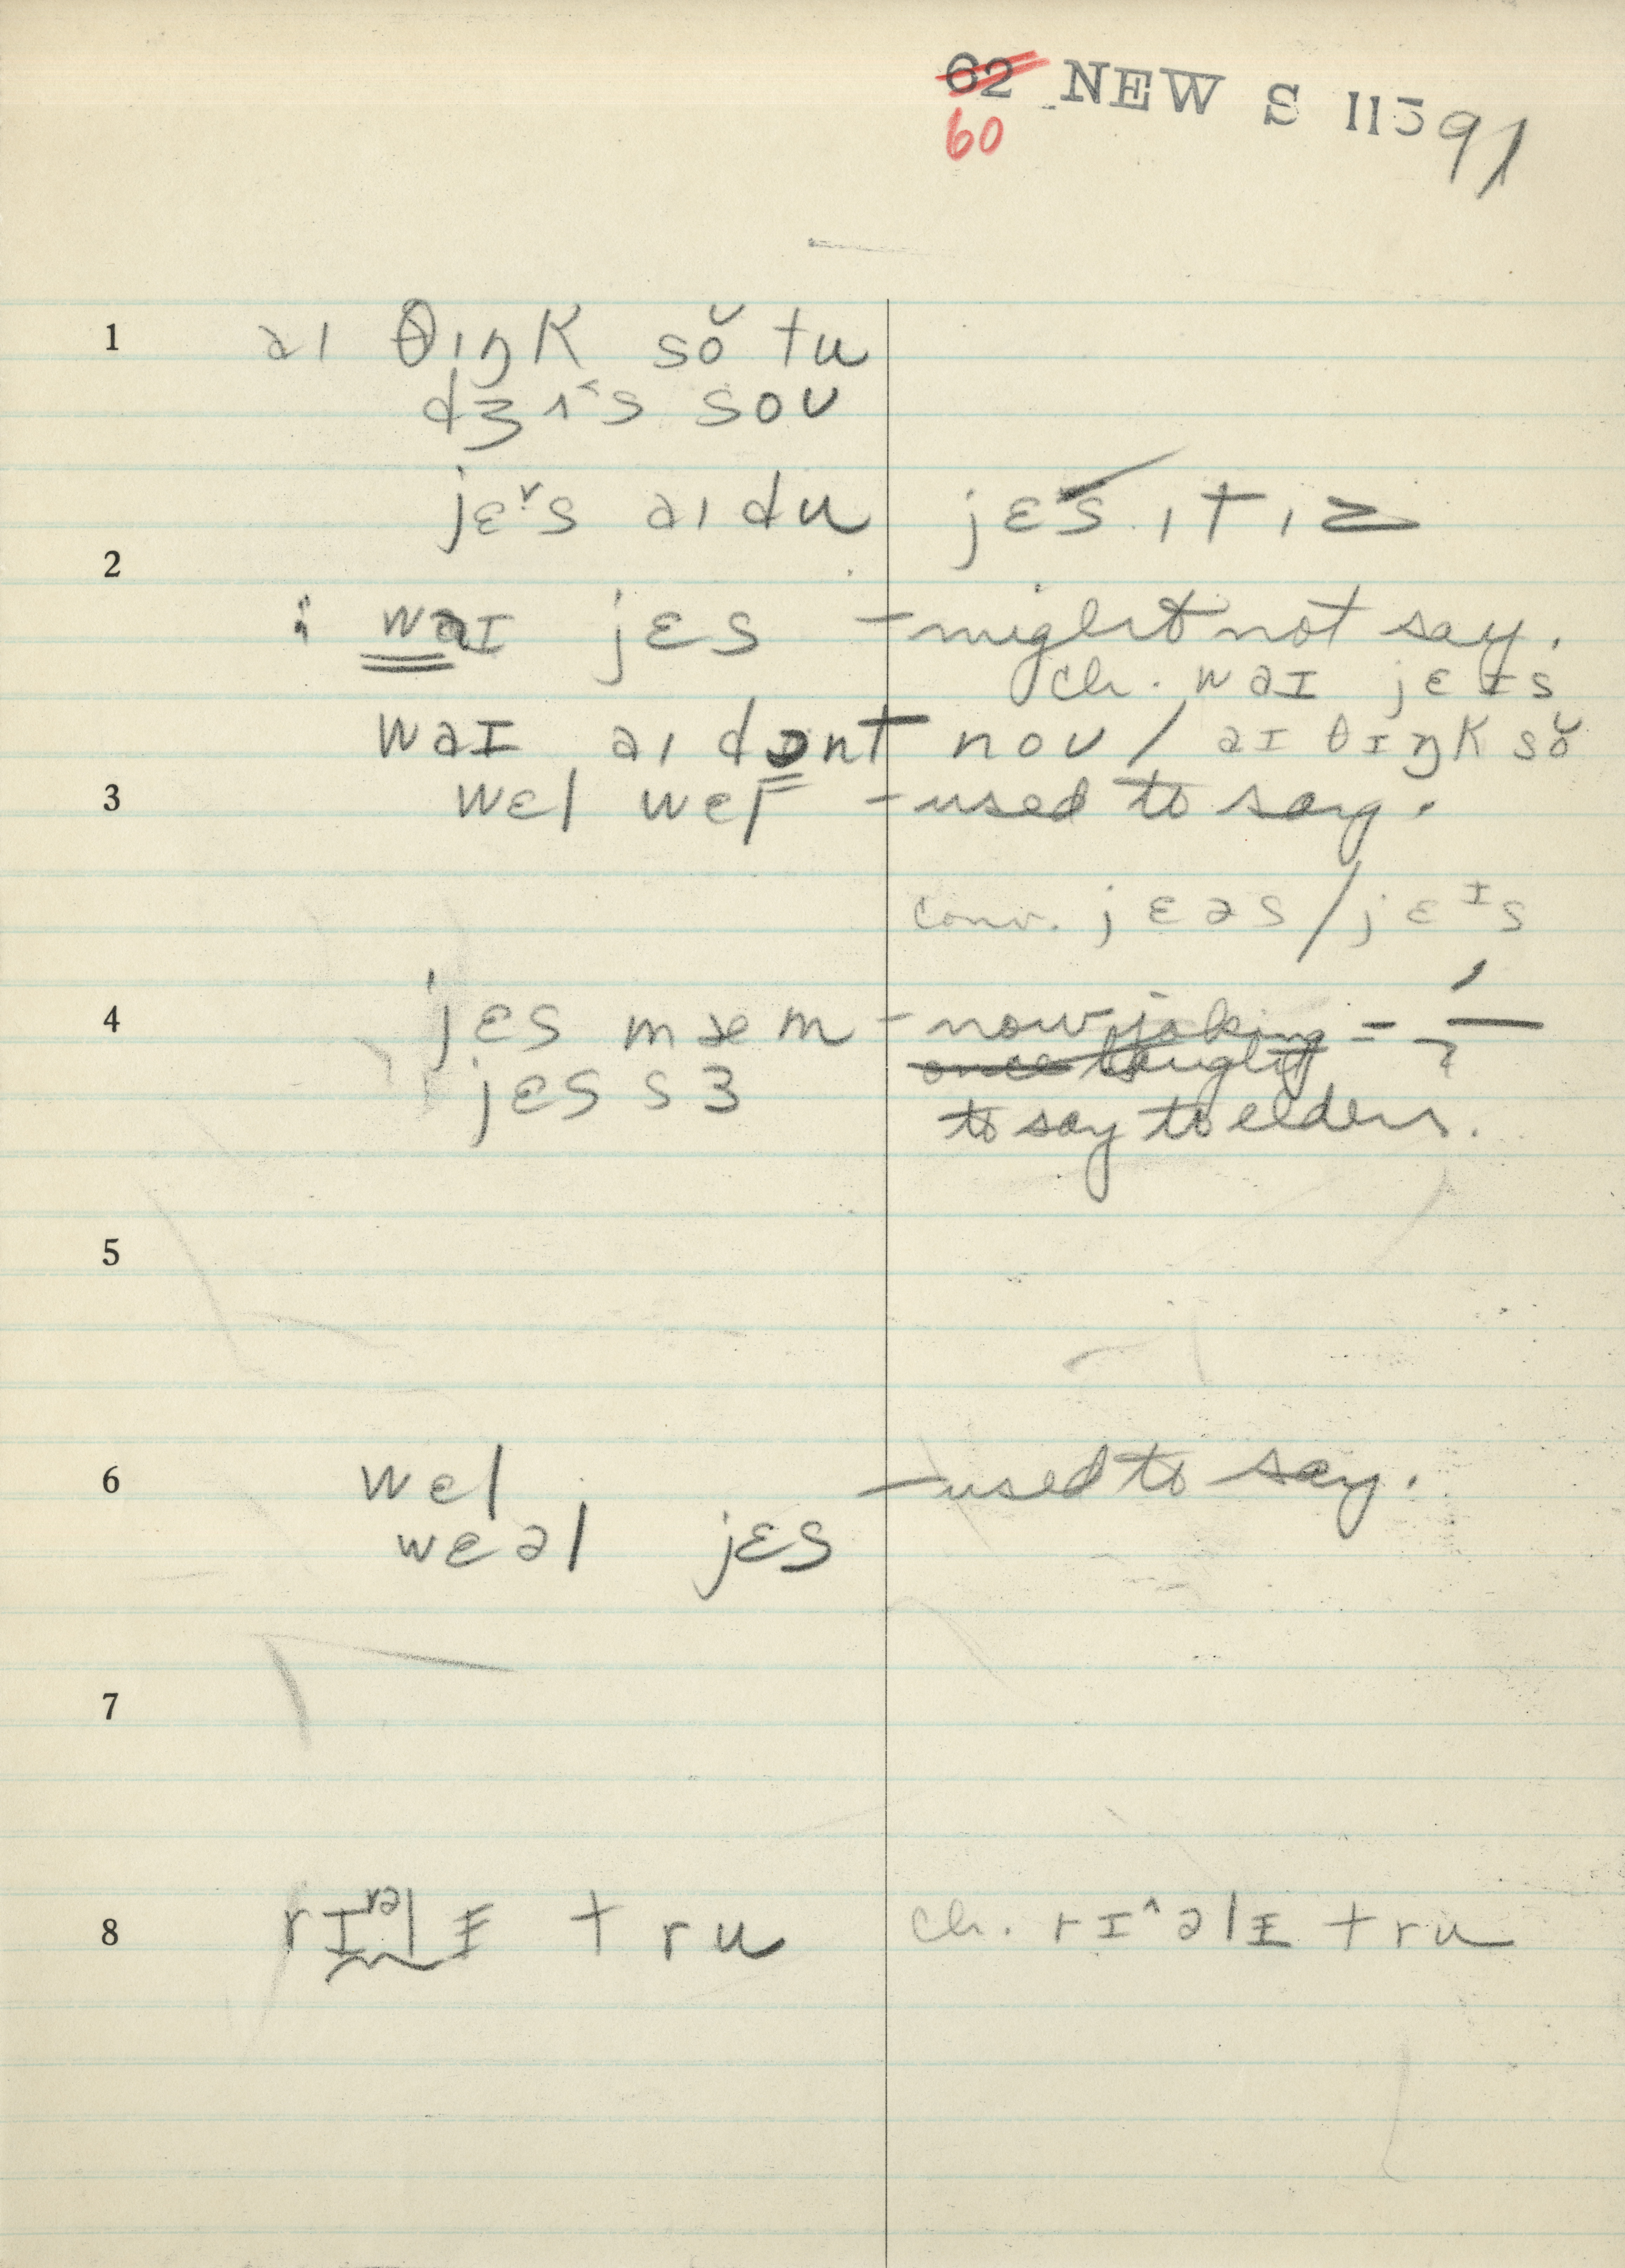 62 NEW S 115 91
60
1 aɪ θɪŋk sŏ tu
dʒɪ˂s soʊ
jɛ˅s aɪ du jɛs ɪt ɪz
2
: waɪ jɛs – might not say.
ch. waɪ jɛɪs
waɪ aɪ dont noʊ / aɪ θɪŋk sŏ
3 wɛl wɛl – used to say.
conv. jɛəs / jɛɪs
4 jɛs mæm – now joking =
jɛs sɜ once taught
to say to elders.
5
6 wɛl – used to say.
wɛəl jɛs
7
8 rɪ˅əlɪ tru ch. rɪ^əlɪ tru